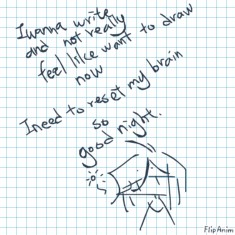 I wanna write
and not really
feel like want to draw
now
I need to reset my brain
so
good night.
FlipAnim